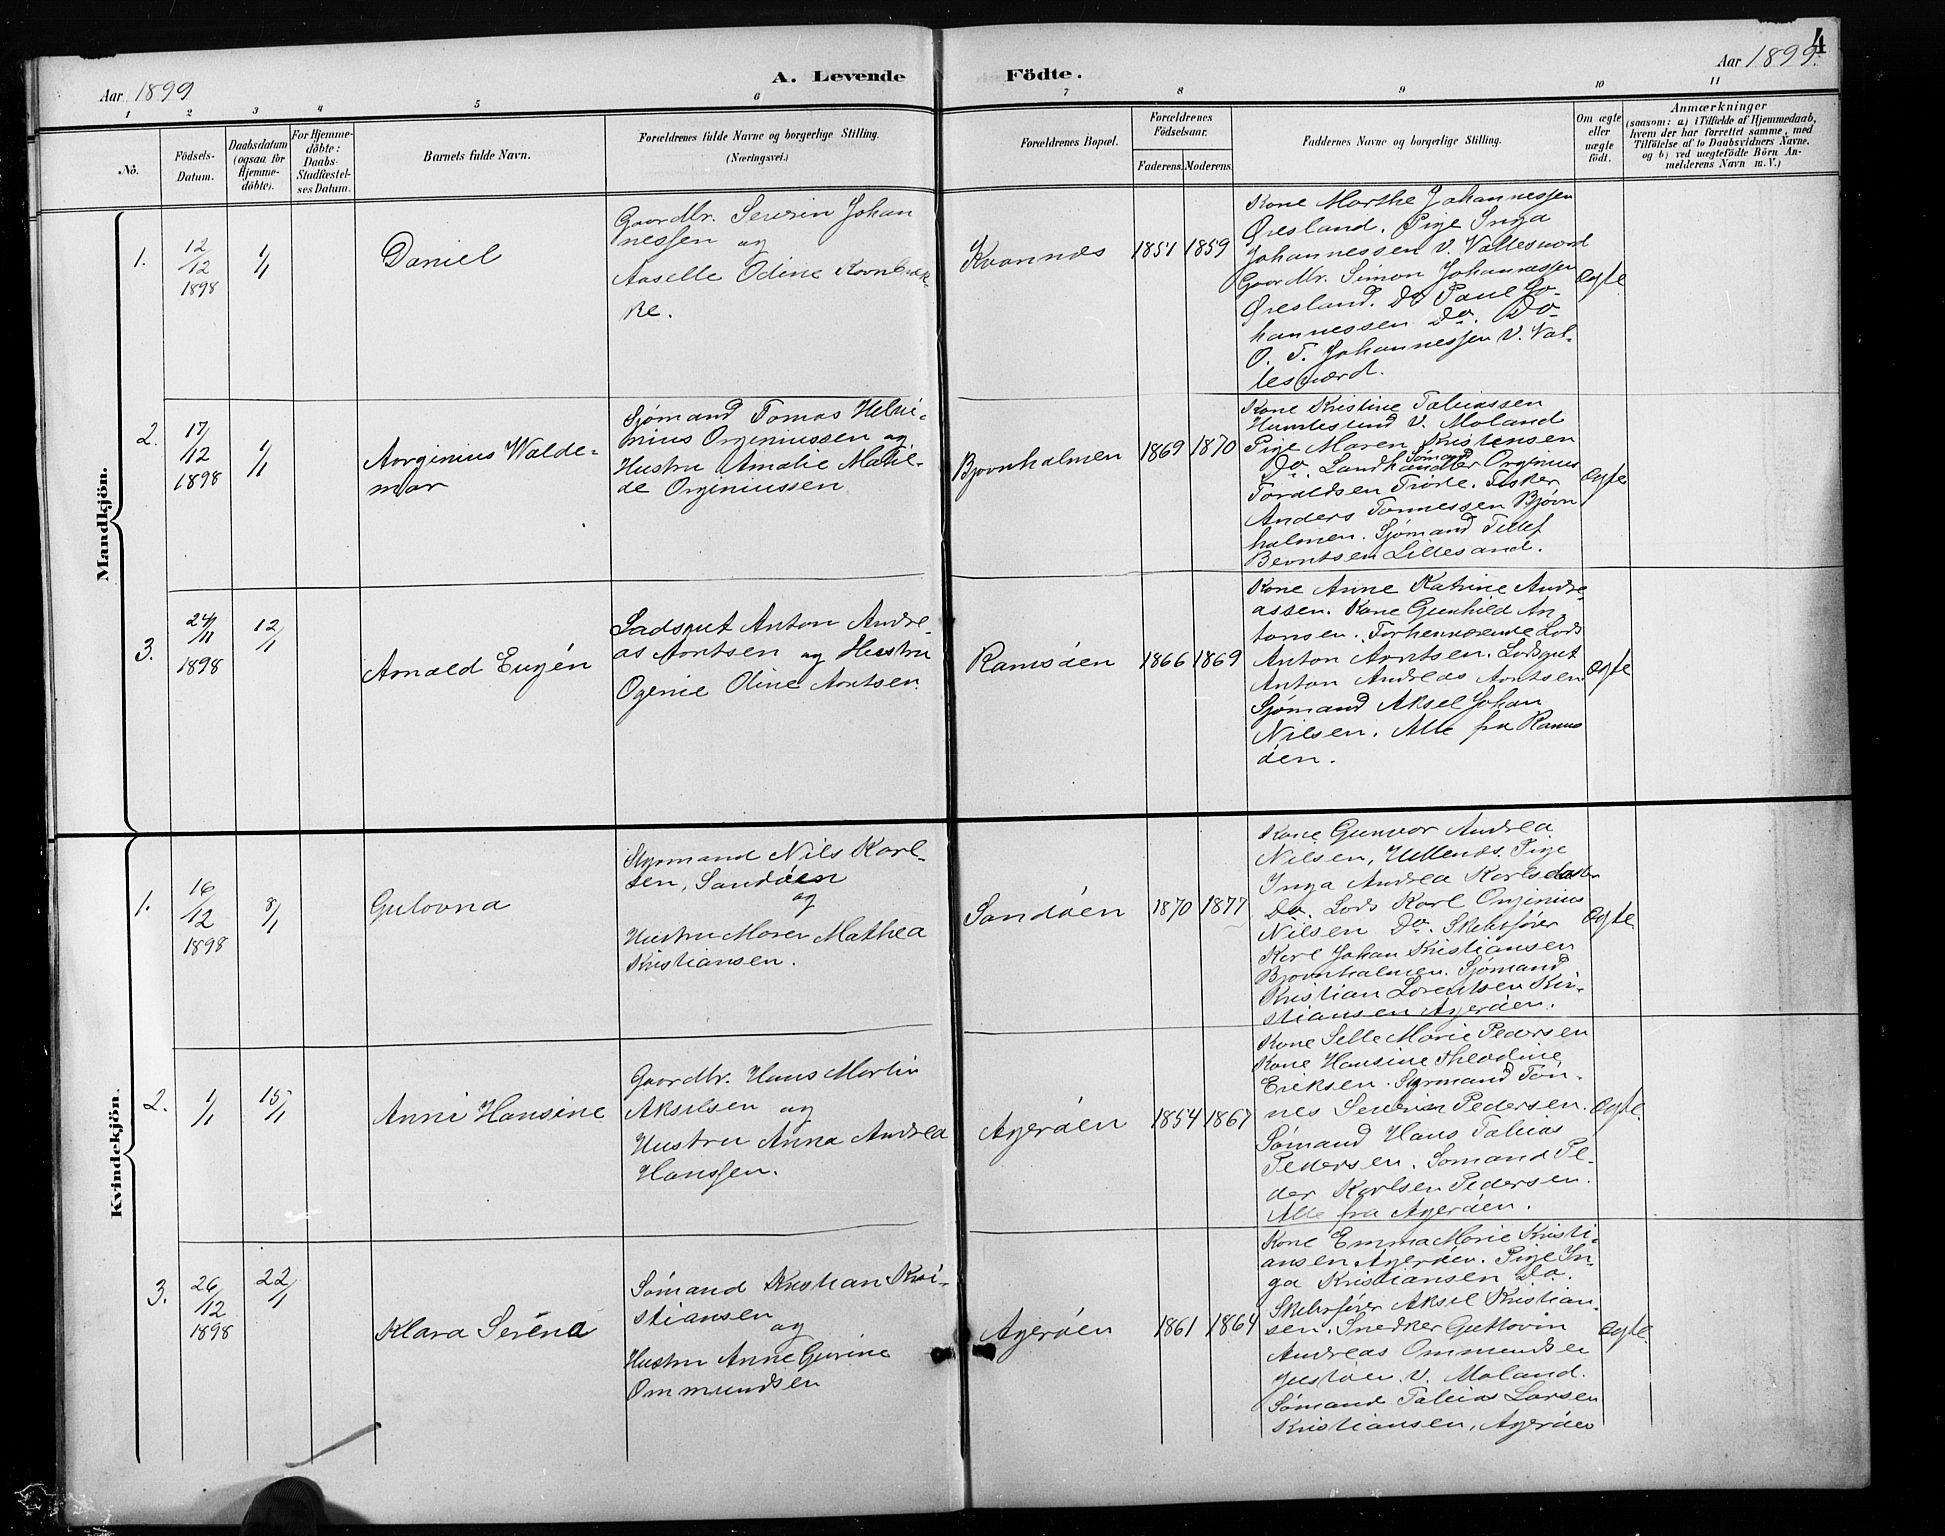 Aar 1899
A. Levende
Födte.
Aar 1899.
4
1
2
3
4
5
6
7
8
9
10
11
No.
Födsels-
Datum.
Daabsdatum
(ogsaa for
Hjemme-
döbte).
For Hjemme-
döbte:
Daabs-
Stadfæstel-
ses Datum.
Barnets fulde Navn.
Forældrenes fulde Navne og borgerlige Stilling.
(Næringsvei.)
Forældrenes Bopæl.
Forældrenes
Födselsaar.
Faderens.
Moderens.
Faddernes Navne og borgerlige Stilling.
Om ægte
eller
uægte
födt.
Anmærkninger
(saasom: a) i Tilfælde af Hjemmedaab,
hvem der har forrettet samme, med
Tilföielse af to Daabsvidners Navne,
og b) ved uægtefödte Börn An-
melderens Navn m. V.)
Mandkjön.
1.
12/12
1898
1/1
Daniel
Gaardbr. Severin Johan
nessen og
Aaselle Odine
ke.
Kvannes
1851
1859
Kone Marthe Johannessen
Øresland. Pige Inga
Johannessen V. Vallesværd
Gaardbr. Simon Johannessen
Øresland. Do Paul Jo-
hannessen Do. Do
O. T. Johannessen V. Val-
lesværd.
ægte
2.
17/12
1898
1/1
Aorginius Walde-
mar
Sjømand Tomas Helmi-
nius Orginiussen og
Hustru Amalie Matil-
de Orginiussen
Bjovnholmen
1869
1870
Kone Kristine Tobiassen
Humlesund V. Moland
Pige Maren Kristensen
Do. Landhandler Orginius
Sømand
Toraldsen Trøde. Fisker
Anders Tønnessen Bjovn
holmen. Sjømand Tellef
Berntsen Lillesand.
ægte
3.
24/11
1898
12/1
Arnold Eugén
Ladsgut Anton Andre-
as Arntsen og Hustru
Ogenie Oline Arntsen
Ramsöen
1866
1869
Kone Anne Katrine Andre-
assen. Kone Gunhild An
tonsen. Forhenværende Lods
Anton Arntsen. Lodsgut
Anton Andreas Arntsen
Sjømand Aksel Johan
Nilsen. Alle fra Rams
öen.
ægte
Kvindekjön.
1.
16/12
1898
8/1
Gulovna
Styrmand Nils Karl-
sen, Sandöen
og
Hustru Maren Mathea
Kristiansen.
Sandöen
1870
1877
Kone Gunvor Andrea
Nilsen, Ullenes. Pige
Inga Andrea Karlsdatter
Do. Lods Karl Orginius
Nilsen Do. Skibsfører
Karl Johan Kristiansen
Bjovnholmen. Sjømand
Kristian Lorentsen Kri-
stiansen Agerøen.
ægte
2.
1/1
15/1
Anni Hansine
Gaardbr. Hans Martin
Akselsen og
Hustru Anna Andrea
Hanssen.
Agerøen
1854
1867
Kone Selle Marie Pedersen
Kone Hansine Theodine
Eriksen. Styrmand Tøn-
nes Severin Pedersen.
Sømand Hans Tobias
Pedersen. Sømand Pe-
der Karlsen Pedersen.
Alle fra Agerøen.
ægte
3.
26/12
1898
22/1
Klara Seréna
Sømand Kristian Kri-
stiansen
og
Hustru Anne Gurine
Ommundsen
Agerøen
1861
1864
Kone Emma Marie Kristi-
ansen Agerøen. Pige In-
ga Kristiansen Do.
Skibsfører Aksel Kristian-
sen. Snedker Guttorm
Andreas Ommundsen
Justøen V. Moland.
Sømand Tobias Larsen
Kristiansen, Agerøen
ægte